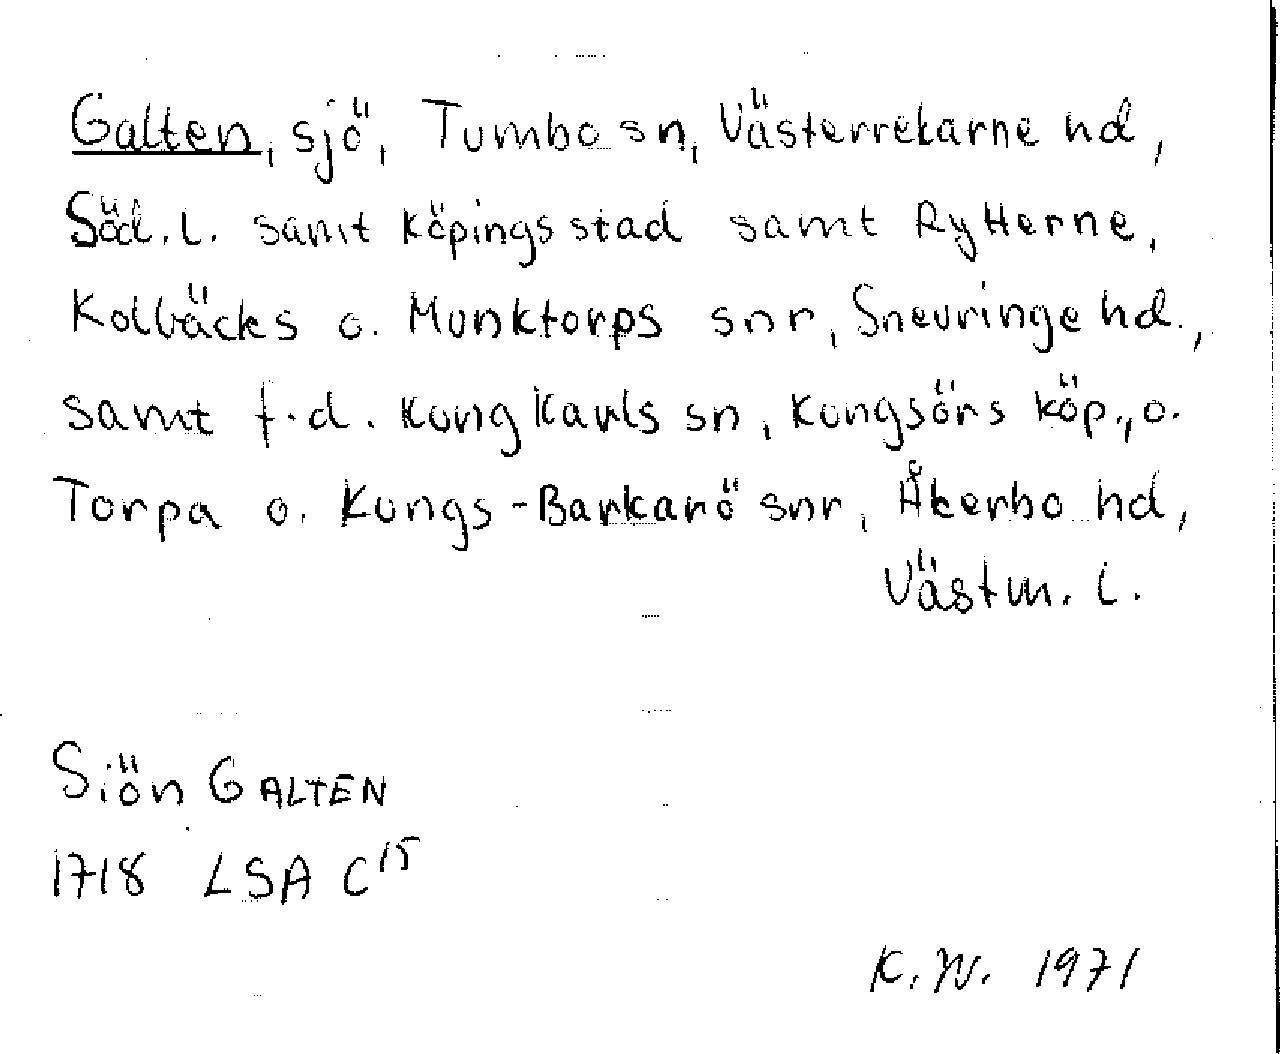 Galten, sjö, Tumbo sn, Västerrekarne hd,
Söd. l. samt Köpings stad samt Rytterne,
Kolbäcks o. Munktorps snr, Snevringe hd.,
samt f.d. Kung Karls sn, Kungsörs köp., o.
Torpa o. Kungs-Barkarö snr, Åkerbo hd,
Västm. l.
Siön GALTEN
1718 LSA C15
K. W. 1971